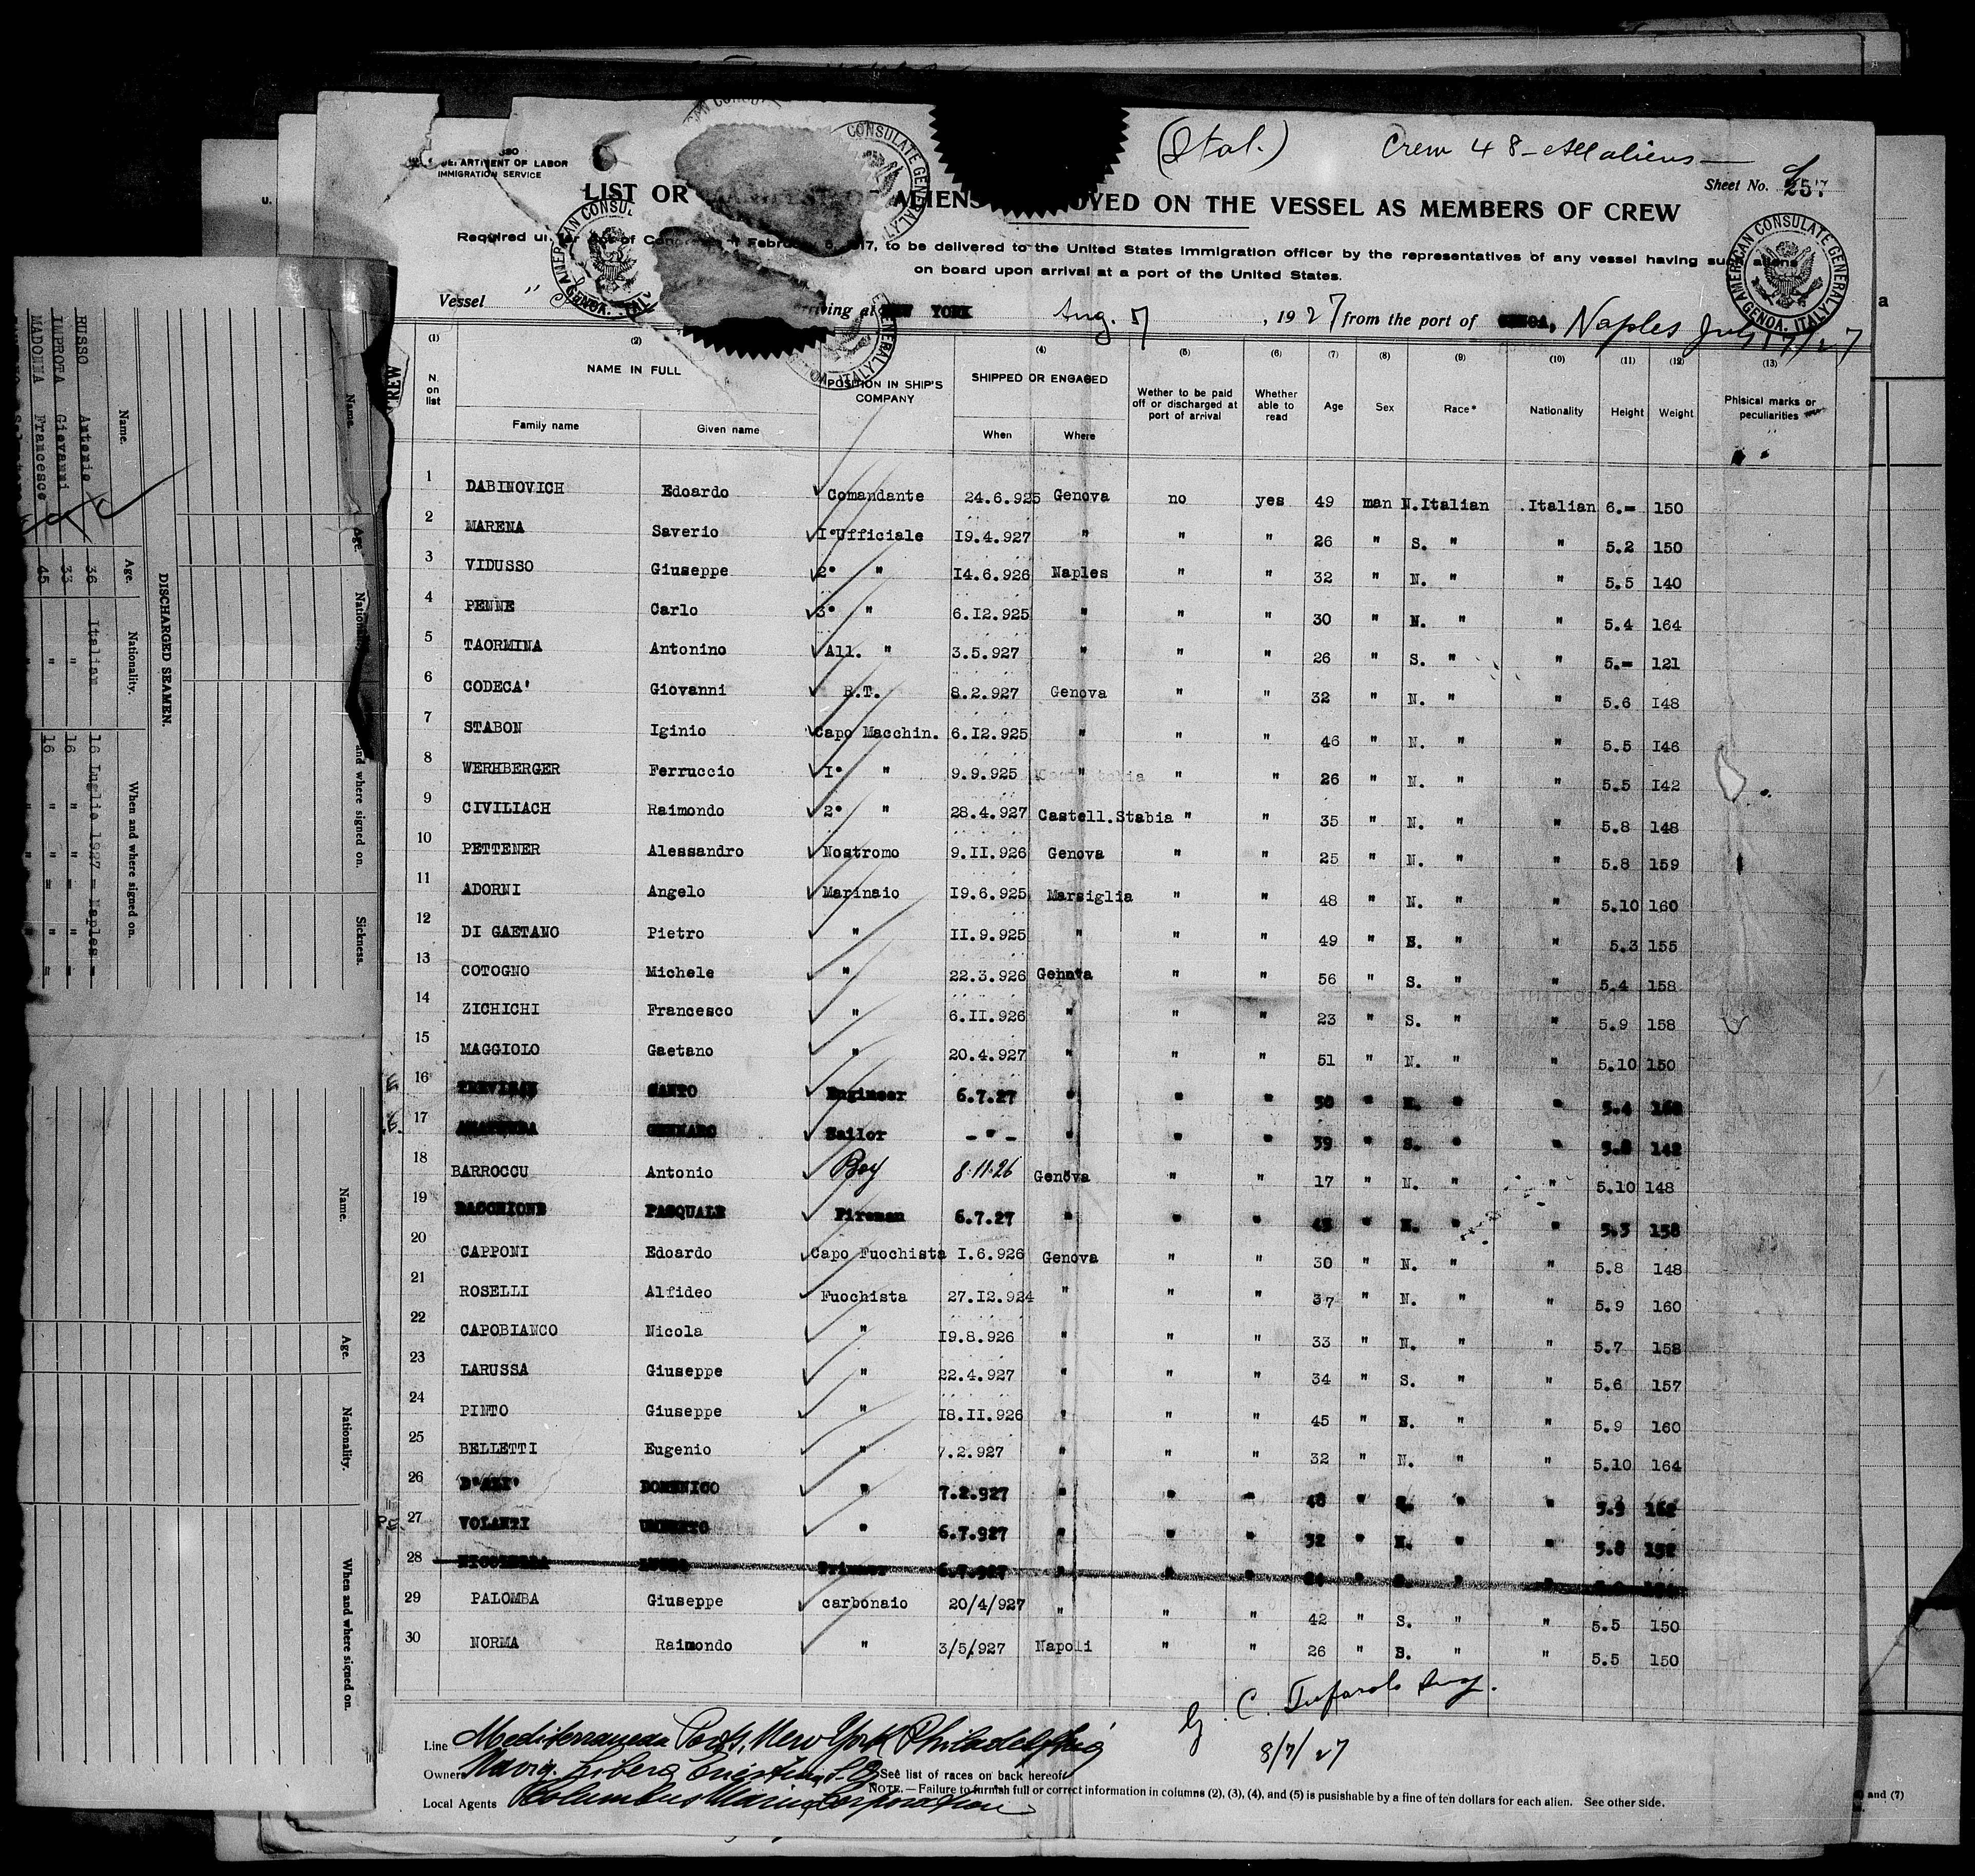 DEPARTMENT OF LABOR
IMMIGRATION SERVICE
(Ital.)
Crew 48 - All aliens
Sheet No. 257
LIST OR ALIENS ON THE VESSEL AS MEMBERS OF CREW
Required Act of Congress February 5, 1917, to be delivered to the United States Immigration officer by the representatives of any vessel having such aliens
on board upon arrival at a port of the United States.
Vessel arriving at NEW YORK Aug. 7, 1927 from the port of GENOA, Naples July 17/27
AMERICAN CONSULATE GENERAL GENOA, ITALY
(1) (2) (4) (5) (6) (7) (8) (9) (10) (11) (12) (13)
N. on list NAME IN FULL POSITION IN SHIP'S COMPANY SHIPPED OR ENGAGED Wether to be paid off or discharged at port of arrival Whether able to read Age Sex Race* Nationality Height Weight Phisical marks or peculiarities
Family name Given name When Where
1 DABINOVICH Edoardo Comandante 24.6.925 Genova no yes 49 man N.Italian .Italian 6.= 150
2 MARENA Saverio I°Ufficiale I9.4.927 " " " 26 " S. " " 5.2 150
3 VIDUSSO Giuseppe 2° " I4.6.926 Naples " " 32 " N. " " 5.5 140
4 PENNE Carlo 3° " 6.I2.925 " " " 30 " N. " " 5.4 164
5 TAORMINA Antonino All. " 3.5.927 " " " 26 " S. " " 5.= 121
6 CODECA' Giovanni R.T. 8.2.927 Genova " " 32 " N. " " 5.6 I48
7 STABON Iginio Capo Macchin. 6.I2.925 " " " 46 " N. " " 5.5 I46
8 WERHBERGER Ferruccio I° " 9.9.925 " " " 26 " N. " " 5.5 I42
9 CIVILIACH Raimondo 2° " 28.4.927 Castell.Stabia " " 35 " N. " " 5.8 148
10 PETTENER Alessandro Nostromo 9.II.926 Genova " " 25 " N. " " 5.8 159
11 ADORNI Angelo Marinaio I9.6.925 Marsiglia " " 48 " N. " " 5.10 160
12 DI GAETANO Pietro " II.9.925 " " " 49 " S. " " 5.3 155
13 COTOGNO Michele " 22.3.926 Genova " " 56 " S. " " 5.4 158
14 ZICHICHI Francesco " 6.II.926 " " " 23 " S. " " 5.9 158
15 MAGGIOLO Gaetano " 20.4.927 " " " 51 " N. " " 5.10 150
16 TREVISAN SANTO Engineer 6.7.27 " " " " N. " " 5.4
17 Sailor - " - " " " 39 " S. " " 142
18 BARROCCU Antonio Boy 8.11.26 Genova " " 17 " N. " " 5.10 148
19 BACCHIONE PASQUALE Fireman 6.7.27 " " " " N. " " 5.5 158
20 CAPPONI Edoardo Capo Fuochista I.6.926 Genova " " 30 " N. " " 5.8 148
21 ROSELLI Alfideo Fuochista 27.I2.924 " " " 37 " N. " " 5.9 160
22 CAPOBIANCO Nicola " I9.8.926 " " " 33 " N. " " 5.7 158
23 LARUSSA Giuseppe " 22.4.927 " " " 34 " S. " " 5.6 157
24 PINTO Giuseppe " I8.II.926 " " " 45 " N. " " 5.9 160
25 BELLETTI Eugenio " 7.2.927 " " " 32 " N. " " 5.10 164
26 D'ALI' DOMENICO " 7.2.927 " " " 48 " S. " " 5.9 162
27 VOLANTI UMBERTO " 6.7.927 " " " 32 " N. " " 5.8 152
28 6.7.927 " " " " " "
29 PALOMBA Giuseppe carbonaio 20/4/927 " " " 42 " S. " " 5.5 150
30 NORMA Raimondo " 3/5/927 Napoli " " 26 " S. " " 5.5 150
8/7/27
Line Mediterranean Ports, New York Philadelphia
Owners Navig. Libera Triestina S.A. *See list of races on back hereof
NOTE. — Failure to furnish full or correct information in columns (2), (3), (4), and (5) is pusishable by a fine of ten dollars for each alien. See other side.
Local Agents Columbus Marine Corporation
and (7)
DISCHARGED SEAMEN.
Name. Age. Nationality. When and where signed on.
RUSSO Antonio 36 Italian 16 Luglio 1927 = Naples =
IMPROTA Giovanni 33 " 16 " " " "
MADONNA Francesco 45 " 16 " " " "
Name. Age. and where signed on. Sickness.
Name. Age. Nationality. When and where signed on.